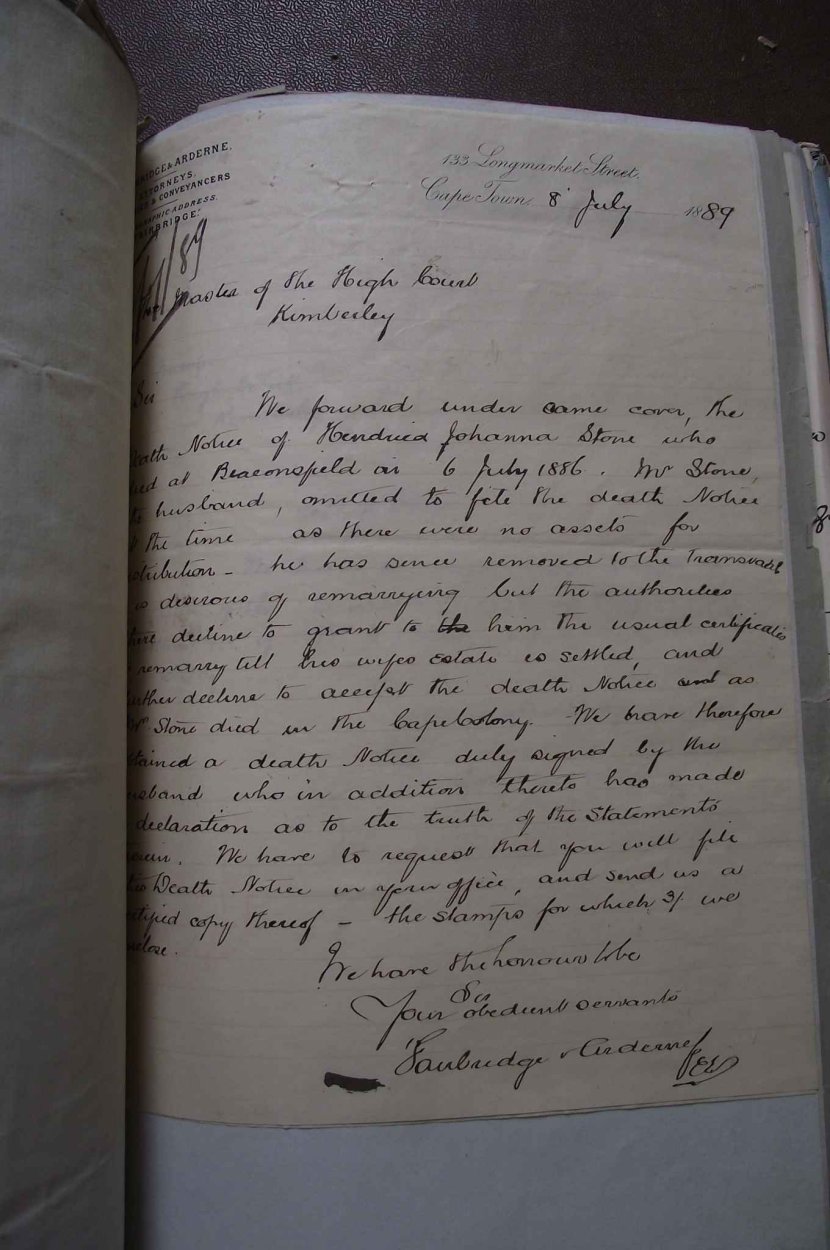 RIDGE & ARDERNE.
TORNEYS.
& CONVEYANCERS
GRAPHIC ADDRESS.
BRIDGE"
133 Longmarket Street.
Cape Town 8 July 1889
/89
The Master of the High Court
Kimberley
Sir
We forward under came cover, the
eath Notice of Hendried Johanna Stone who
ied at Beaconsfield on 6 July 1886. Mr Stone,
husband, omitted to file the death Notice
t the time as there were no assets for
stribution - he has since removed to the Transvaal
is desirous of remarrying but the authorities
there decline to grant to the him the usual certificate
remarry till his wifes Estate is settled, and
urther decline to accept the death Notice and as
Mrs. Stone died in the Cape Colony. We have therefore
tained a death Notice duly signed by the
usband who in addition thereto has made
declaration as to the truth of the Statements
erein. We have to request that you will file
this Death Notice in your office, and send us a
ertified copy thereof - the stamps for which 3/ we
nclose.
We have the honour to be
Sir
Your obedient servants
Fairbridge & Arderne